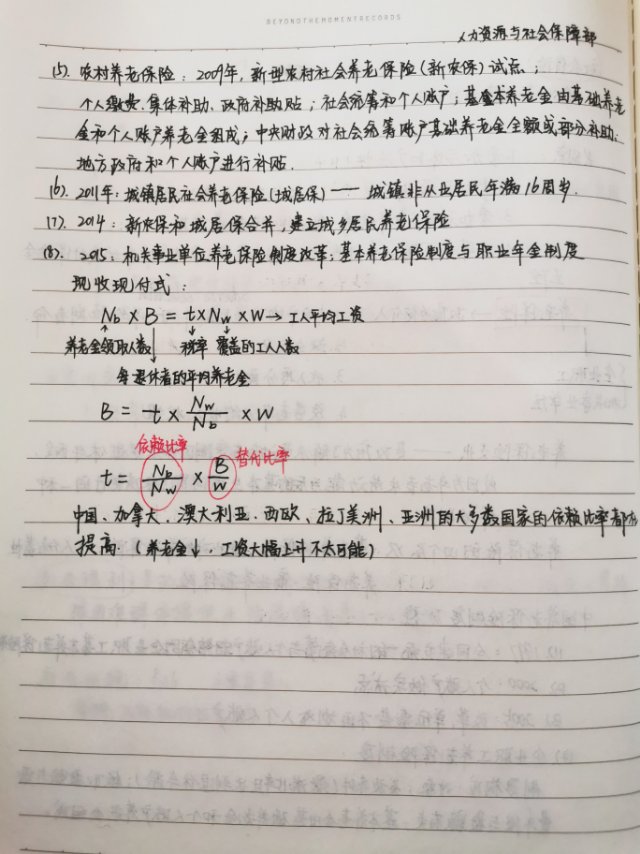 BEYONDTHEMOMENTRECORDS
人力资源与社会保障部
(5). 农村养老保险：2009年，新型农村社会养老保险(新农保)试点；
个人缴费、集体补助、政府补贴；社会统筹和个人账户；基本养老金由基础养老
金和个人账户养老金组成；中央财政对社会统筹账户基础养老金全额或部分补助；
地方政府和个人账户进行补贴.
(6). 2011年：城镇居民社会养老保险(城居保) —— 城镇非从业居民年满16周岁.
(7). 2014：新农保和城居保合并，建立城乡居民养老保险
(8). 2015，机关事业单位养老保险制度改革：基本养老保险制度与职业年金制度
现收现付式：
Nb × B = t × Nw × W → 工人平均工资
养老金领取人数 税率 覆盖的工人人数
每退休者的平均养老金
B = t × Nw/Nb × W
依赖比率
替代比率
t = Nb/Nw × B/W
中国、加拿大、澳大利亚、西欧、拉丁美洲、亚洲的大多数国家的依赖比率都在
提高.(养老金↓，工资大幅上升不太可能)